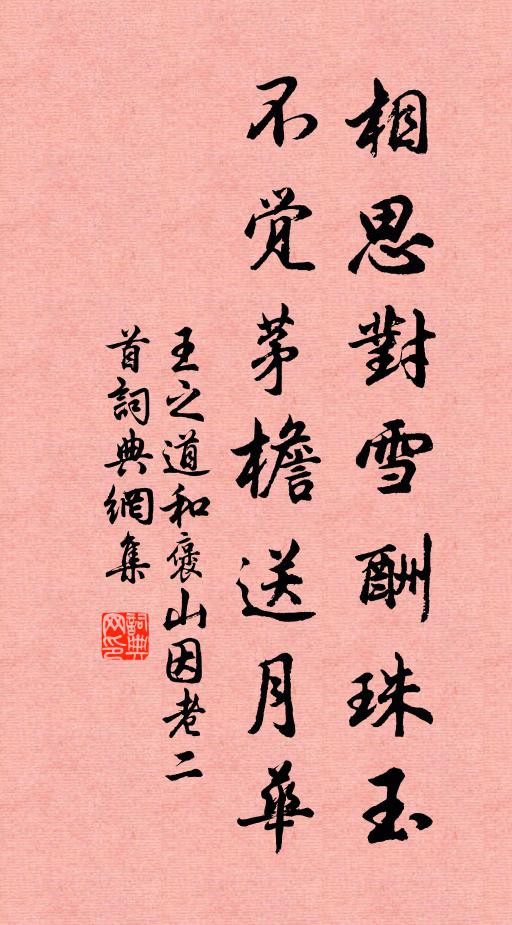 相思對雪酬珠玉
不觉茅檐送月華
王之道和褒山因老二
首詞典網集
詞典网印